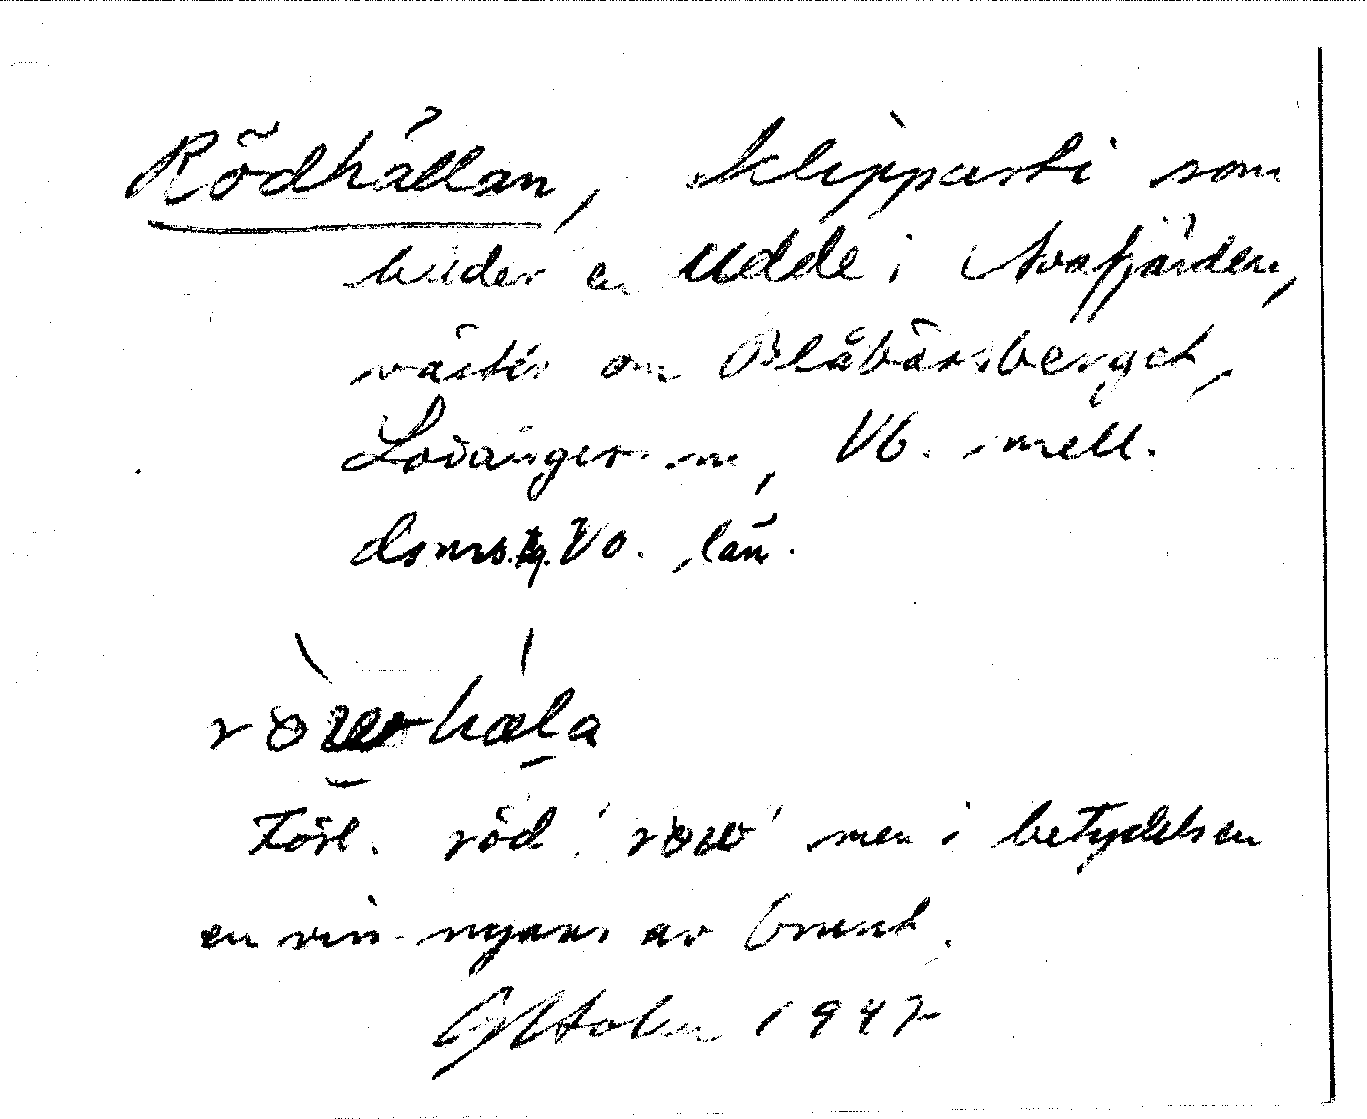 Rödhällan, klipparti som
bildar en udde i Avafjärden,
väster om Blåbärsberget,
Lövångers sn, Vb. mell.
domsag. Vb. län.
Förl. röd men i betydelsen
en viss nyans av brunt.
Oktober 1947